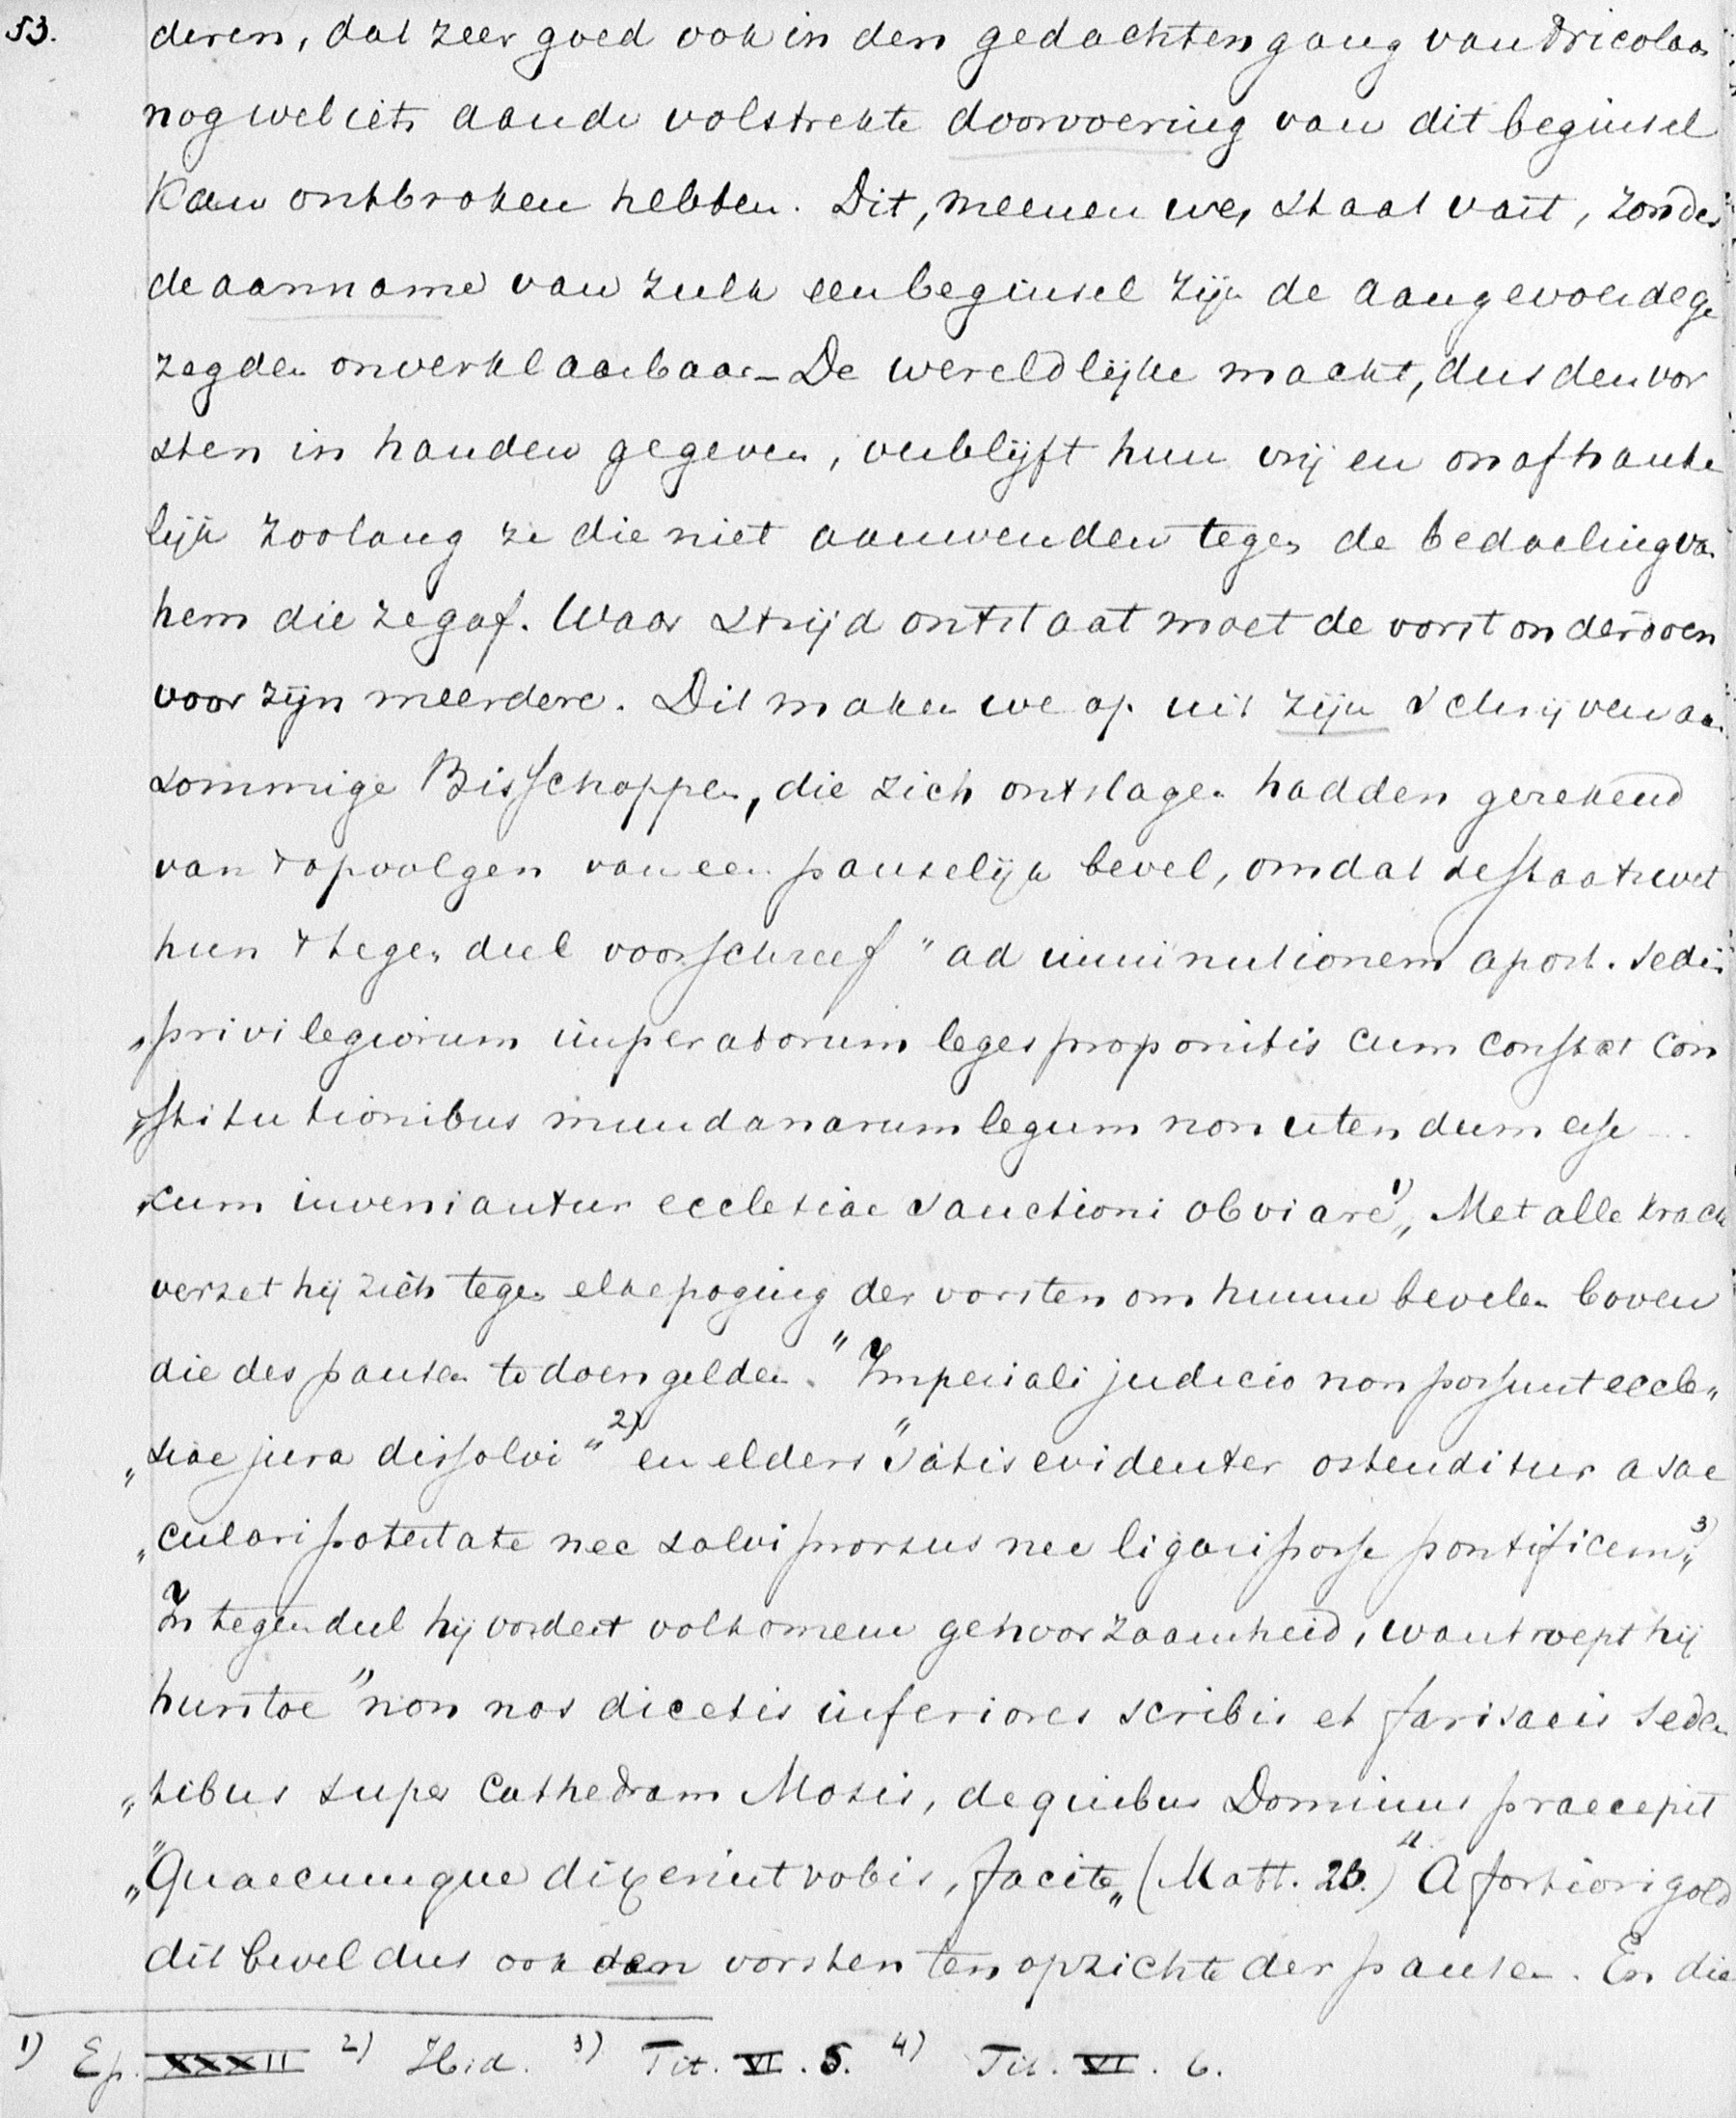 53.
deren, dat zeer goed ook in den gedachtengang van Nicolaas
nog wel iets aan de volstrekte doorvoering van dit beginsel
kan ontbroken hebben. Dit, meenen we, staat vast, zonder
de aanname van zulk een beginsel zijn de aangevoerde ge
zegden onverklaarbaar – De wereldlijke macht, dus den vor
sten in handen gegeven, verblijft hun vrij en onafhanke
lijk zoolang ze die niet aanwenden tegen de bedoeling van
hem die ze gaf. Waar strijd ontstaat moet de vorst onderdoen
voor zijn meerdere. Dit maken we op uit zijn schrijven aan
sommige Bisschoppen, die zich ontslagen hadden gerekend
van 't opvolgen van een pauselijk bevel, omdat de staatswet
hun 't tegendeel voorschreef "ad imminutionem apost. sedis
„privilegiorum imperatorum leges proponitis cum constet con
„stitutionibus mundanarum legum non utendum esse ...
„cum inveniantur ecclesiae sanctioni obviare 1)„ Met alle kracht
verzet hij zich tegen elke poging der vorsten om hunne bevelen boven
die des pausen te doen gelden. "Imperiali judicio non possunt eccle„
„siae jura dissolvi" 2) en elders "satis evidenter ostenditur a sae
„culari potestate nec solvi prorsus nec ligari posse pontificem„ 3)
In tegendeel hij vordert volkomene gehoorzaamheid, want roept hij
hun toe "non nos dicetis inferiores scribis et farisaeis seden
„tibus super Cathedram Mosis, de quibus Dominus praecepit
„"Quaecumque dixerint vobis, facite„ (Matt. 23.)" 4) A fortiori gold
dit bevel dus ook den vorsten ten opzichte der pausen. En die
1) Ep. XXXII 2) Ibid. 3) Tit. VI. 5. 4) Tit. VI. 6.